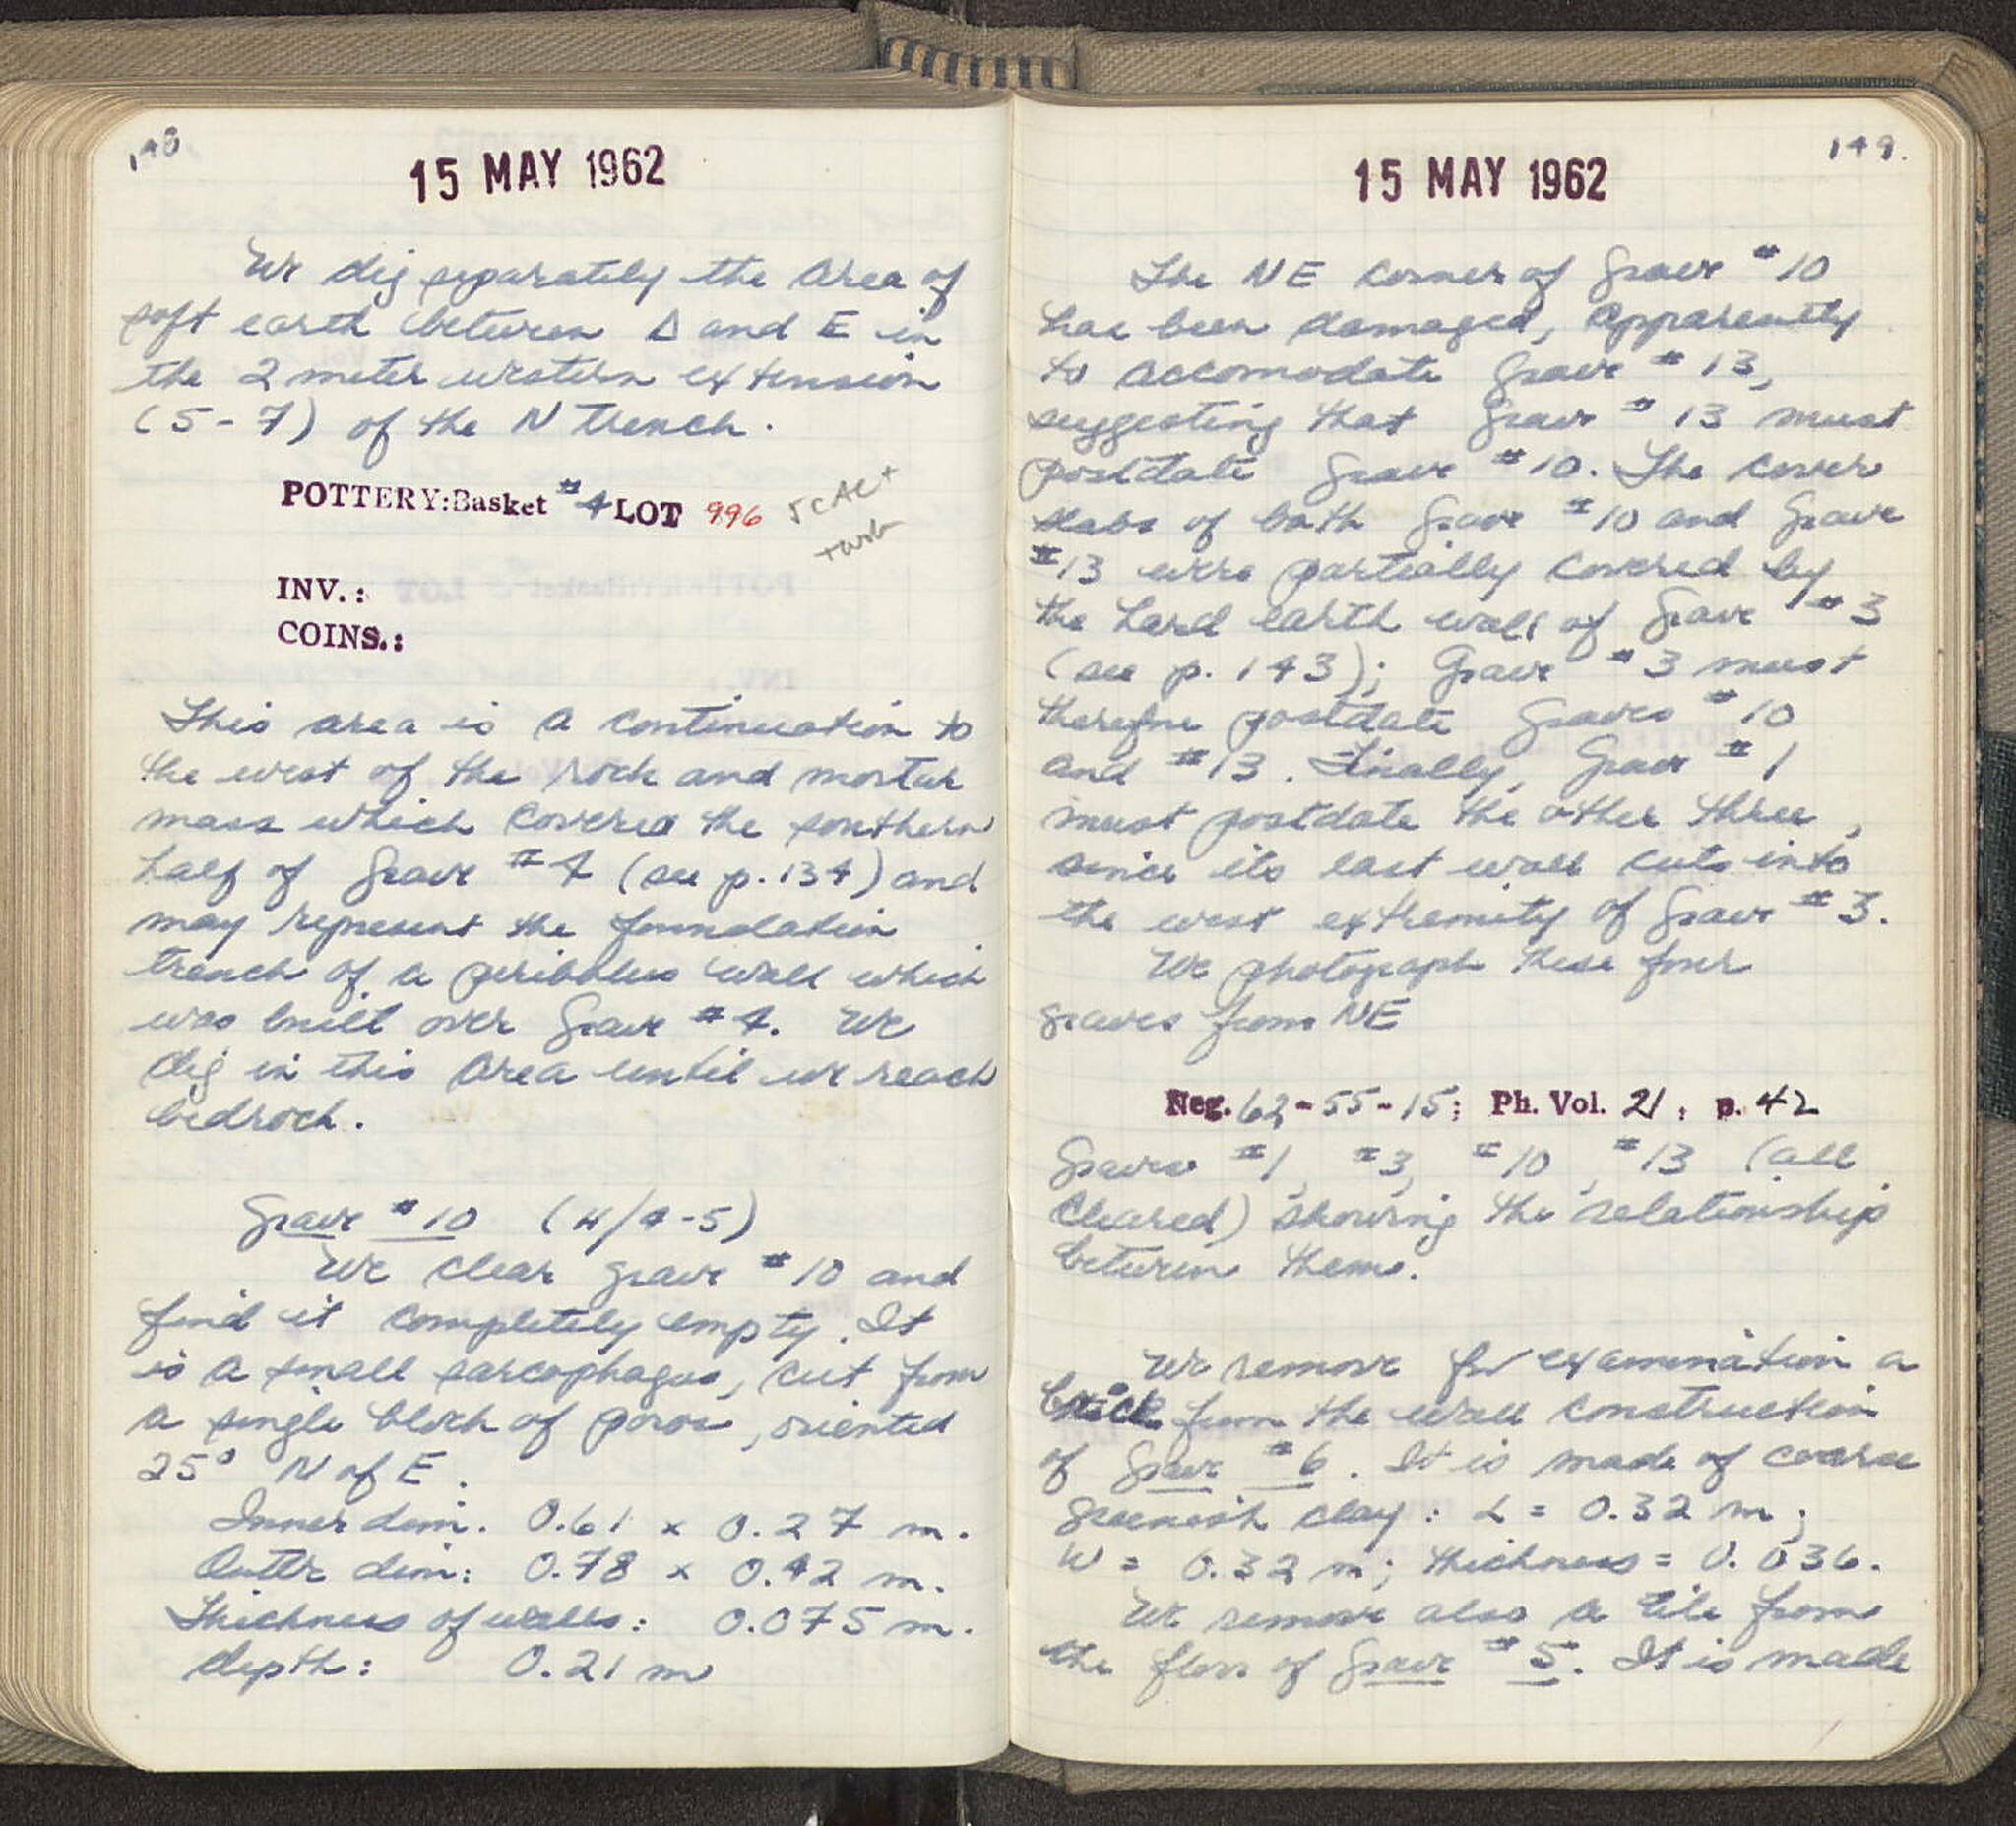 148
15 MAY 1962
We dig separately the area of
soft earth between Δ and E in
the 2 meter western extension
(5-7) of the N trench.
POTTERY:Basket #4 LOT 996
INV.:
COINS.:
This area is a continuation to
the west of the rock and mortar
mass which covered the southern
half of Grave #4 (see p. 134) and
may represent the foundation
trench of a peribolus wall which
was built over Grave #4. We
dig in this area until we reach
bedrock.
Grave #10 (H/4-5)
We clear grave #10 and
find it completely empty. It
is a small sarcophagus, cut from
a single block of poros, oriented
25° N of E.
Inner dim. 0.61 x 0.27 m.
Outer dim: 0.78 x 0.42 m.
Thickness of walls: 0.075 m.
depth: 0.21 m
149.
15 MAY 1962
The NE corner of Grave #10
has been damaged, apparently
to accomodate Grave #13,
suggesting that Grave #13 must
postdate Grave #10. The cover
slabs of both Grave #10 and Grave
#13 were partially covered by
the hard earth wall of Grave #3
(see p. 143); Grave #3 must
therefore postdate Graves #10
and #13. Finally, Grave #1
must postdate the other three,
since its east wall cuts into
the west extremity of Grave #3.
We photograph these four
graves from NE
Neg. 62-55-15; Ph. Vol. 21, p. 42
Graves #1, #3, #10, #13 (all
cleared) showing the relationship
between them.
We remove for examination a
brick from the wall construction
of Grave #6. It is made of coarse
greenish clay: L = 0.32 m;
W = 0.32 m; thickness = 0.036.
We remove also a tile from
the floor of Grave #5. It is made